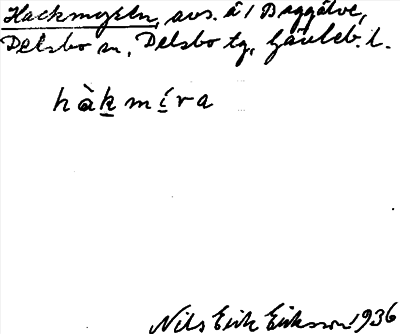 Hackmyreln, avs. å / Byggälve,
Delsbo sn, Delsbo tg, Gävleb. l.
hàk míra
Nils Erik Eriksson 1936